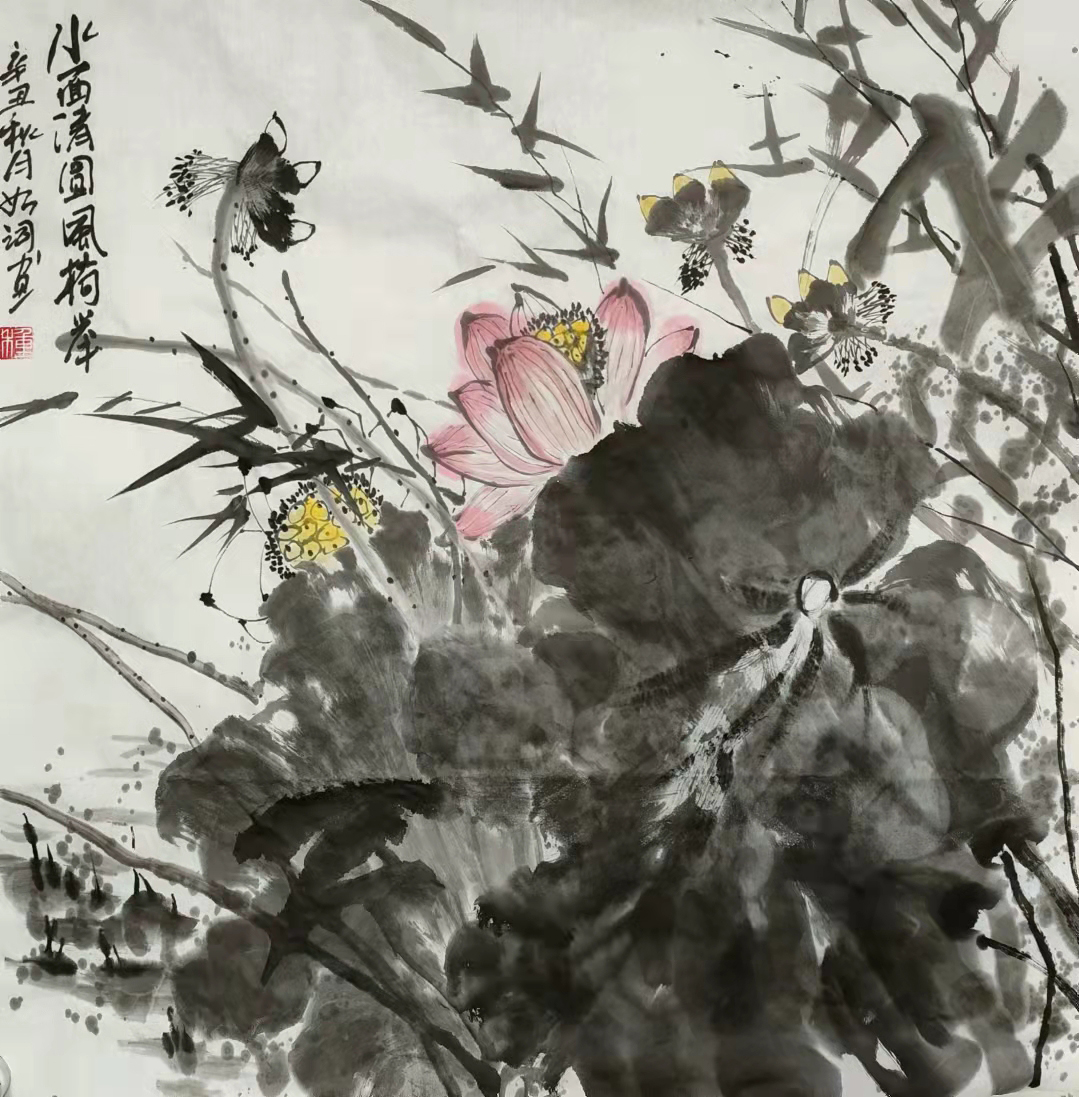 水面清圆风荷举
辛丑秋月如词画